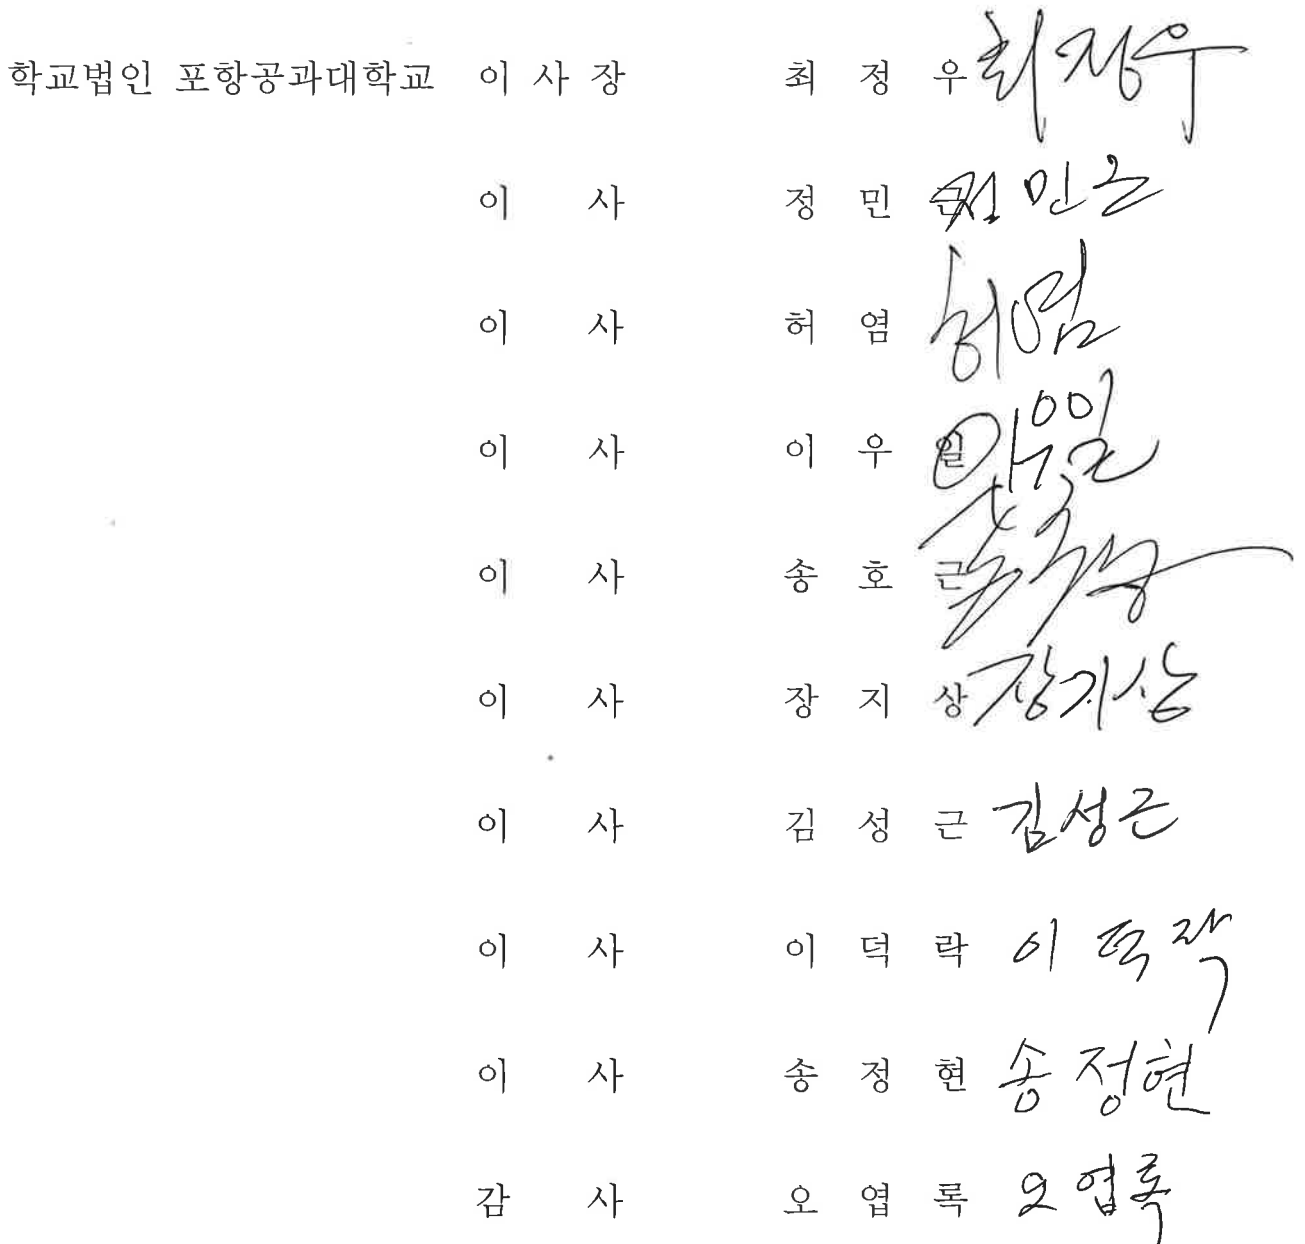 학교법인 포항공과대학교 이 사 장 최 정 우 최정우
이 사 정 민 근 정민근
이 사 허 염 허염
이 사 이 우 일 이우일
이 사 송 호 근
이 사 장 지 상 장지상
이 사 김 성 근 김성근
이 사 이 덕 락 이덕락
이 사 송 정 현 송정현
감 사 오 엽 록 오엽록